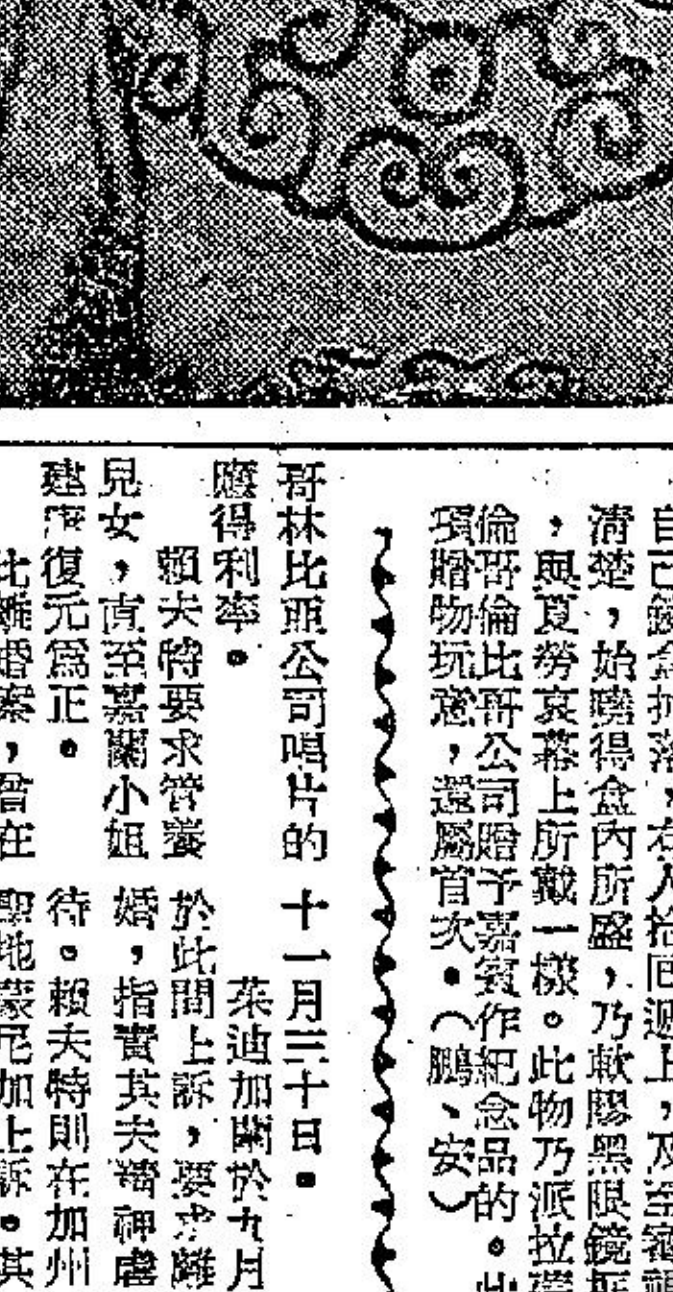 自己鏡盒掉落,有人拾回遞上,及至審視
清楚,始曉得盒內所盛,乃軟膠黑眼鏡框
,與夏勞哀幕上所戴一樣。此物乃派拉
倫哥倫比哥公司贈予嘉賓作紀念品的。此
項贈物玩意,還屬首次。(鵬、安)
哥林比亞公司唱片的
應得利率。
賴夫特要求管養
兒女,直至嘉蘭小姐
建康復元為正。
此離婚案,曾在
十一月三十日。
茱迪加蘭於九月
於此間上訴,要求離
婚,指責其夫精神虐
待。賴夫特則在加州
聖地蒙尼加上訴。其